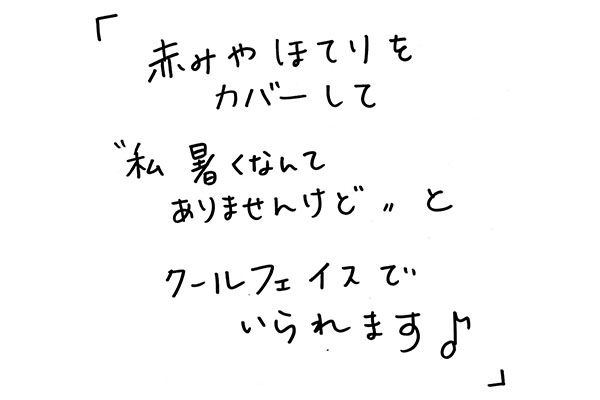 「
赤みやほてりを
カバーして
〝私 暑くなんて
ありませんけど〟と
クールフェイスで
いられます♪
」